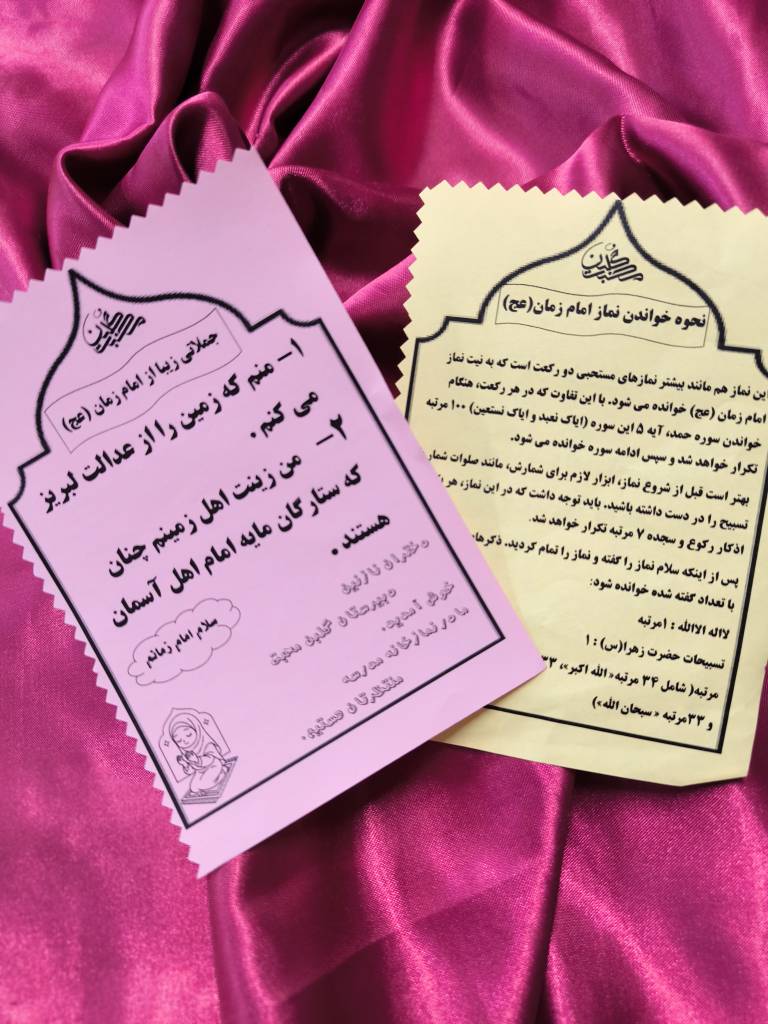 جملاتی زیبا از امام زمان (عج)
۱- منم که زمین را از عدالت لبریز
می کنم.
۲- من زینت اهل زمینم چنان
که ستارگان مایه امام اهل آسمان
هستند.
دختران نازنین
دبیرستان گلبن محبی
خوش آمدید.
ما در نمازخانه مدرسه
منتظرتان هستیم.
سلام امام زمانم
نحوه خواندن نماز امام زمان(عج)
این نماز هم مانند بیشتر نمازهای مستحبی دو رکعت است که به نیت نماز
امام زمان (عج) خوانده می شود. با این تفاوت که در هر رکعت، هنگام
خواندن سوره حمد، آیه ۵ این سوره (ایاک نعبد و ایاک نستعین) ۱۰۰ مرتبه
تکرار خواهد شد و سپس ادامه سوره خوانده می شود.
بهتر است قبل از شروع نماز، ابزار لازم برای شمارش، مانند صلوات شمار
تسبیح را در دست داشته باشید. باید توجه داشت که در این نماز، هر
اذکار رکوع و سجده ۷ مرتبه تکرار خواهد شد.
پس از اینکه سلام نماز را گفته و نماز را تمام کردید. ذکرها
با تعداد گفته شده خوانده شود:
لااله الاالله : ۱مرتبه
تسبیحات حضرت زهرا(س) : ۱
مرتبه( شامل ۳۴ مرتبه« الله اکبر»، ۳۳
و ۳۳مرتبه « سبحان الله»)